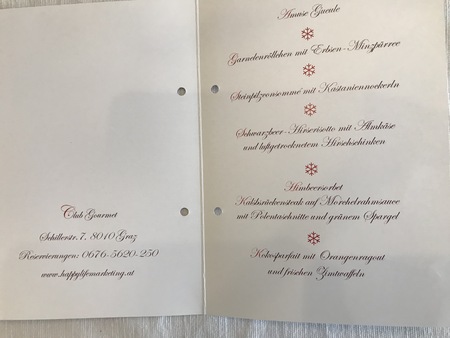 Club Gourmet
Schillerstr. 7, 8010 Graz
Reservierungen: 0676-5620-250
www.happylifemarketing.at
Amuse Gueule
Garnelenröllchen mit Erbsen-Minzpürree
Steinpilzconsommé mit Kastaniennockerln
Schwarzbeer-Hirserisotto mit Almkäse
und luftgetrocknetem Hirschschinken
Himbeersorbet
Kalbsrückensteak auf Morchelrahmsauce
mit Polentaschnitte und grünem Spargel
Kokosparfait mit Orangenragout
und frischen Zimtwaffeln